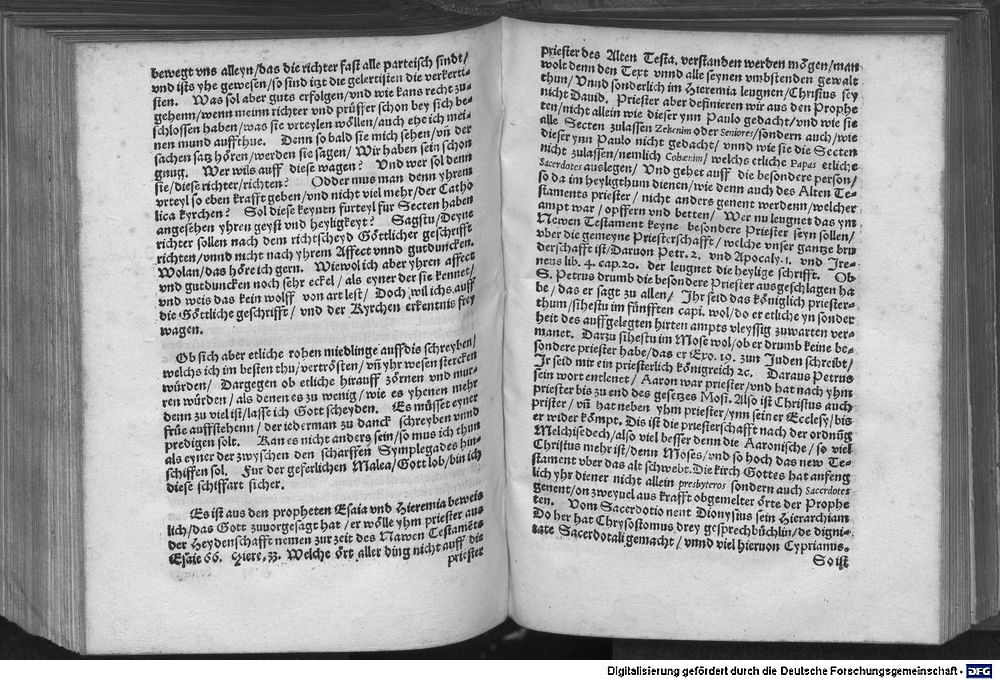 bewegt vns alleyn/das die richter fast alle parteisch sindt/
vnd ists yhe gewesen/so sind itzt die gelertisten die verkerti-
sten. Was sol aber guts erfolgen/vnd wie kans recht zu-
gehenn/wenn meinn richter vnd prüffer schon bey sich be-
schlossen haben/was sie vrteylen wöllen/auch ehe ich mei-
nen mund auffthue. Denn so bald sie mich sehen/vñ der
sachen satz hören/werden sie sagen/Wir haben sein schon
gnug. Wer wils auff diese wagen? Vnd wer sol denn
sie/diese richter/richten? Odder mus man denn yhrem
vrteyl so eben krafft geben/vnd nicht viel mehr/der Catho
lica kyrchen? Sol diese keynen furteyl fur Secten haben
angesehen yhren geyst vnd heyligkeyt? Sagstu/Deyne
richter sollen nach dem richtscheyd Göttlicher geschrifft
richten/vnnd nicht nach yhrem Affect vnnd gutduncken.
Wolan/das höre ich gern. Wiewol ich aber yhren affect
vnd gutduncken noch sehr eckel/als eyner der sie kennet/
vnd weis das kein wolff von art lest/Doch wil ichs auff
die Göttliche geschrifft/vnd der Kyrchen erkentnis frey
wagen.
Ob sich aber etliche rohen miedlinge auff dis schreyben/
welchs ich im besten thu/vertrösten/vñ yhr wesen stercken
würden/Dargegen ob etliche hirauff zörnen vnd mur-
ren würden/als denen es zu wenig/wie es yhenen mehr
denn zu viel ist/lasse ich Gott scheyden. Es müsset eyner
früe auffstehenn/der iederman zu danck schreyben vnnd
predigen solt. Kan es nicht anders sein/so mus ich thun
als eyner der zwyschen den scharffen Symplegades hin-
schiffen sol. Fur der geferlichen Malea/Gott lob/bin ich
diese schiffart sicher.
Es ist aus den propheten Esaia vnd Hieremia beweis
lich/das Gott zuuorgesagt hat/er wölle yhm priester aus
der Heydenschafft nemen zur zeit des Nawen Testamẽts
Esaie 66. Hiere. 33. Welche ört aller ding nicht auff die
priester
priester des Alten Testa. verstanden werden mögen/man
wole denn den Text vnnd alle seynen vmbstenden gewalt
thun/Vnnd sonderlich im Hieremia leugnen/Christus sey
nicht Dauid. Priester aber definieren wir aus den Prophe
ten/nicht allein wie dieser ynn Paulo gedacht/vnd wie sie
alle Secten zulassen Zekenim oder Seniores/sondern auch/wie
dieser ynn Paulo nicht gedacht/vnnd wie sie die Secten
nicht zulassen/nemlich Cohænim/welchs etliche Papas etliche
Sacerdotes auslegen/Vnd gehet auff die besondere person/
so da im heyligthum dienen/wie denn auch des Alten Te-
staments priester/nicht anders genent werdenn/welcher
ampt war/opffern vnd betten/Wer nu leugnet das yns
Newen Testament keyne besondere Priester seyn sollen/
vber die gemeyne Priesterschafft/welche vnser gantze bru
derschafft ist/Daruon Petr. 2. vnd Apocaly. 1. vnd Ire-
neus lib. 4. cap. 20. der leugnet die heylige schrifft. Ob
S. Petrus drumb die besondere Priester ausgeschlagen ha
be/das er sagt zu allen/Ihr seid das königlich priester-
thum/sihestu im fünfften capi. wol/do er etliche yn sonder
heit des auffgelegten hirten ampts vleyssig zuwarten ver-
manet. Darzu sihestu im Mose wol/ob er drumb keine be-
sondere priester habe/das er Exo. 19. zun Juden schreibt/
Jr seid mir ein priesterlich königreich ꝛc. Daraus Petrus
sein wort entlenet/Aaron war priester/vnd hat nach yhm
priester bis zu end des gesetzes Mosi. Also ist Christus auch
prister/vñ hat neben yhm priester/ynn seiner Ecclesy/bis
er wider kömpt. Dis ist die priesterschafft nach der ordnũg
Melchisedech/also viel besser denn die Aaronische/so viel
Christus mehr ist/denn Moses/vnd so hoch das new Te-
stament vber das alt schwebt. Die kirch Gottes hat anfeng
lich yhr diener nicht allein presbyteros sondern auch Sacerdotes
genent/on zweyuel aus krafft obgemelter örte der Prophe
ten. Vom Sacerdotio nent Dionysius sein Hierarchiam
Do her hat Chrysostomus drey gesprechbüchlin/de digni-
tate Sacerdotali gemacht/vnnd viel hieruon Cyprianus.
So ist
Digitalisierung gefördert durch die Deutsche Forschungsgemeinschaft - DFG